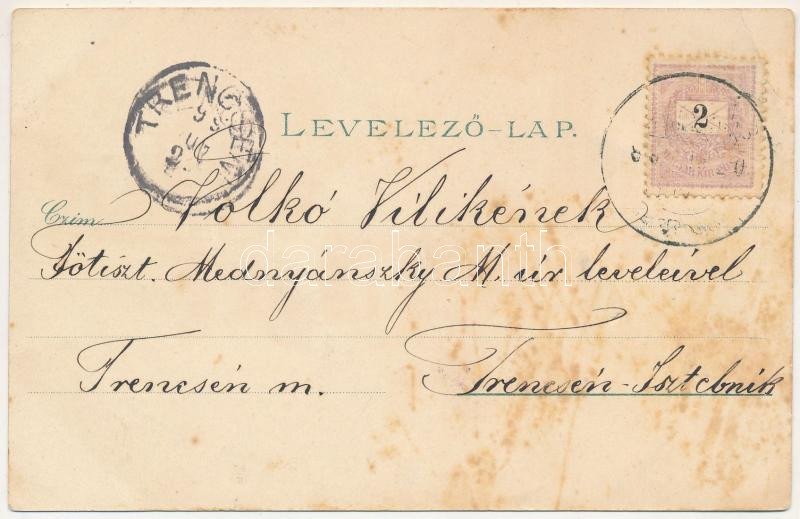 TRENCSÉN
99
LEVELEZŐ-LAP.
2
Czím Volkó Vilikének
Főtiszt. Mednyánszky M. úr leveleivel
Trencsén m. Trencsén-Isztebnik
darabanth